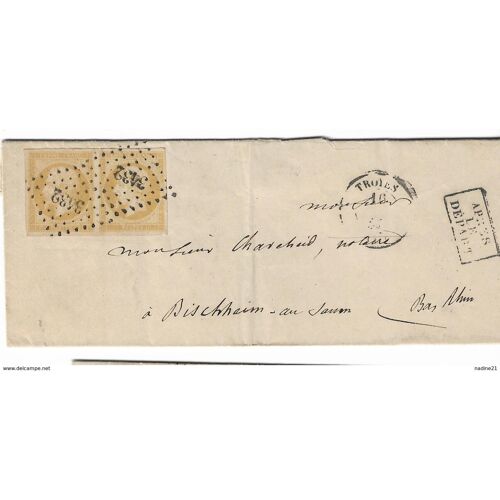 3432
3432
TROYES
16
APRÈS
LE
DEPART
monsieur
monsieur Charcheid, notaire
à Bischheim-au Saum
Bas Rhin
www.delcampe.net
nadine21